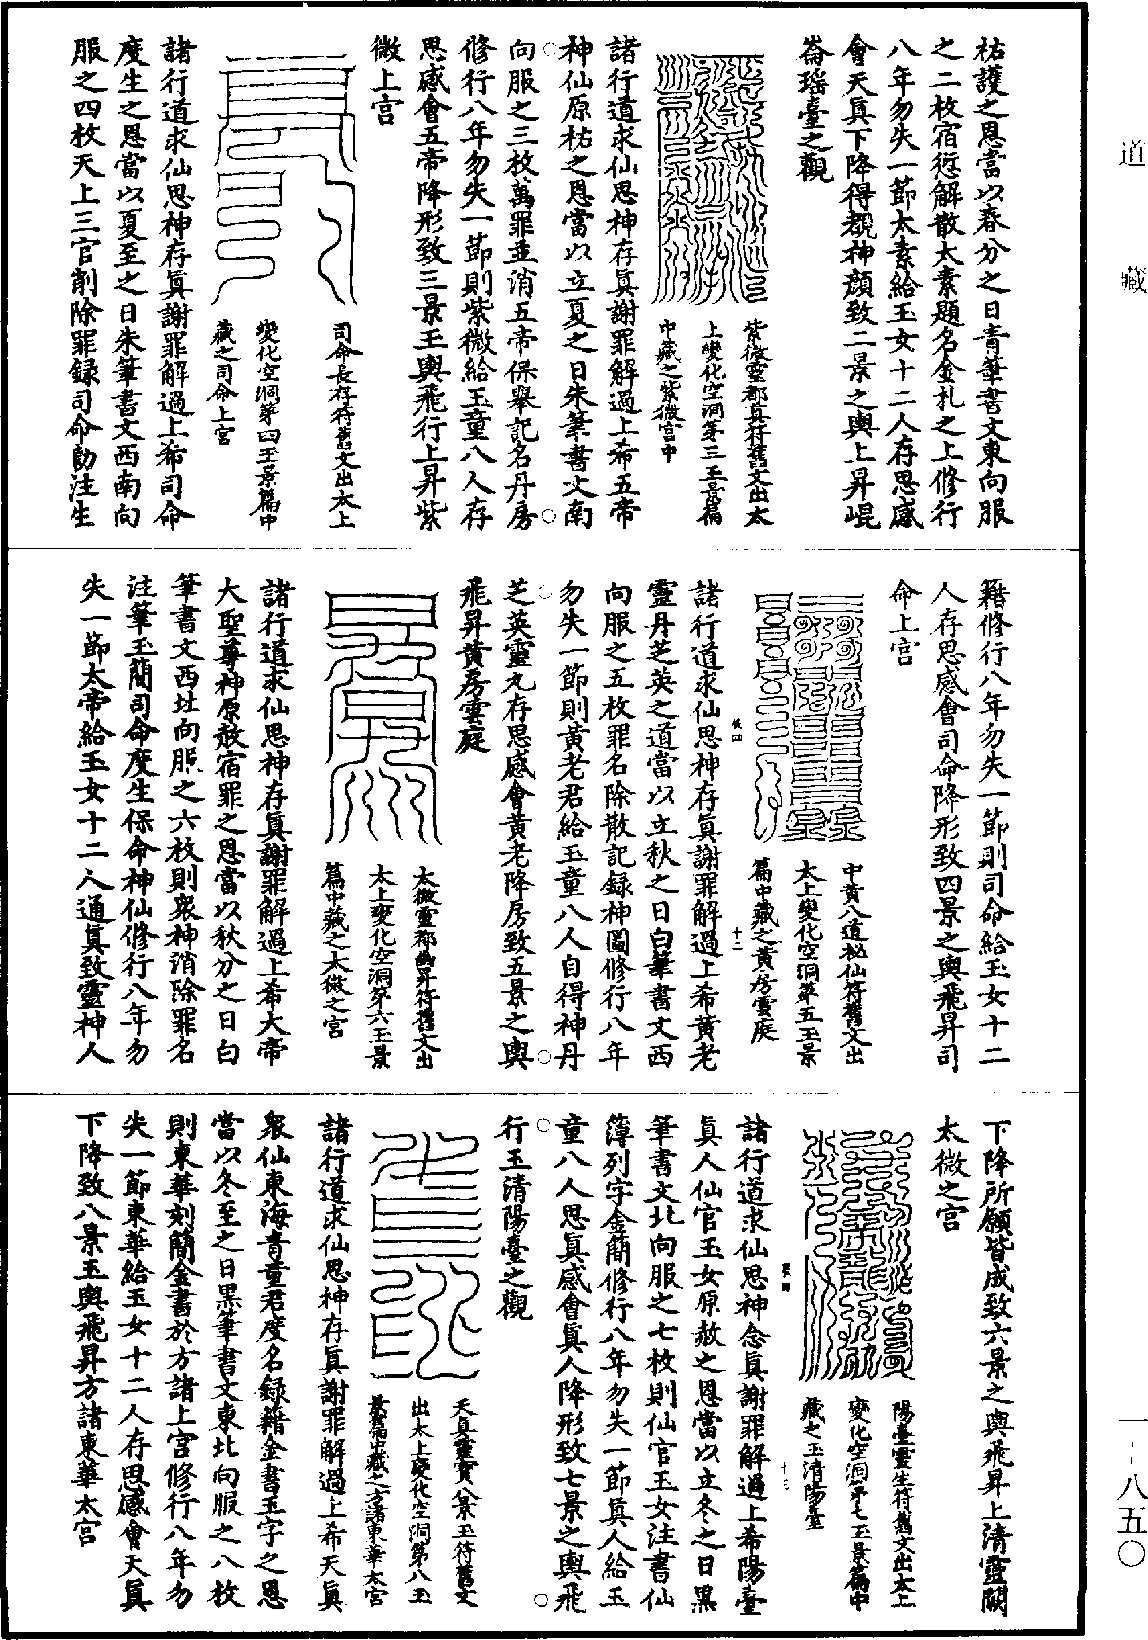 祐護之恩當以春分之日青筆書文東向服
之二枚宿愆解散太素題名金札之上修行
八年勿失一節太素給玉女十二人存思感
會天真下降得覩神顏致二景之輿上昇崐
崙瑤臺之觀
紫微靈都真符舊文出太
上變化空洞第三玉景篇
中藏之紫微宮中
諸行道求仙思神存真謝罪解過上希五帝
神仙原祐之恩當以立夏之日朱筆書文南
向服之三枚萬罪並消五帝保舉記名丹房
修行八年勿失一節則紫微給玉童八人存
思感會五帝降形致三景玉輿飛行上昇紫
微上宮
司命長存符舊文出太上
變化空洞第四玉景篇中
藏之司命上宮
諸行道求仙思神存真謝罪解過上希司命
度生之恩當以夏至之日朱筆書文西南向
服之四枚天上三官削除罪録司命勒注生
籍修行八年勿失一節則司命給玉女十二
人存思感會司命降形致四景之輿飛昇司
命上宮
中黃八道祕仙符舊文出
太上變化空洞第五玉景
篇中藏之黃房雲庭
諸行道求仙思神存真謝罪解過上希黃老
靈丹芝英之道當以立秋之日白筆書文西
向服之五枚罪名除散記録神圖修行八年
勿失一節則黃老君給玉童八人自得神丹
芝英靈丸存思感會黃老降房致五景之輿
飛昇黃房雲庭
太微靈都幽昇符舊文出
太上變化空洞第六玉景
篇中藏之太微之宮
諸行道求仙思神存真謝罪解過上希大帝
大聖尊神原赦宿罪之恩當以秋分之日白
筆書文西北向服之六枚則衆神消除罪名
注筆玉簡司命度生保命神仙修行八年勿
失一節太帝給玉女十二人通真致靈神人
下降所願皆成致六景之輿飛昇上清靈闕
太微之宮
陽臺靈生符舊文出太上
變化空洞第七玉景篇中
藏之玉清陽臺
諸行道求仙思神念真謝罪解過上希陽臺
真人仙官玉女原赦之恩當以立冬之日黑
筆書文北向服之七枚則仙官玉女注書仙
簿列字金簡修行八年勿失一節真人給玉
童八人思真感會真人降形致七景之輿飛
行玉清陽臺之觀
天真靈寶八景玉符舊文
出太上變化空洞第八玉
景篇中藏之方諸東華太宮
諸行道求仙思神存真謝罪解過上希天真
衆仙東海青童君度名録籍金書玉字之恩
當以冬至之日黑筆書文東北向服之八枚
則東華刻簡金書於方諸上宮修行八年勿
失一節東華給玉女十二人存思感會天真
下降致八景玉輿飛昇方諸東華太宮
道藏
一－八五〇